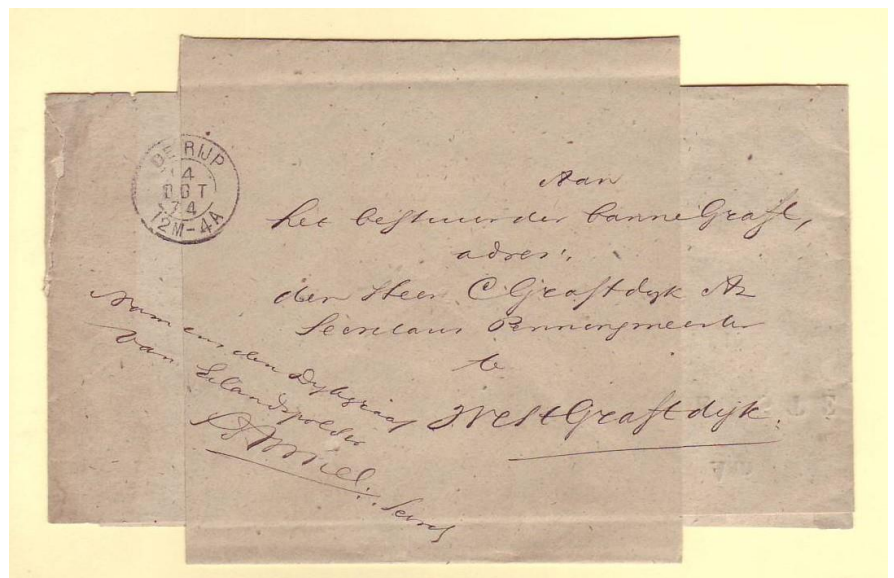 DE RIJP
4
OCT
74
12M-4A
Aan
het bestuur der banne Graft,
adres:
den Heer C Graftdyk Az
Secretaris Penningmeester
te
West Graftdijk.
Namens den Dykgraaf
van Eilandspolder
Secret